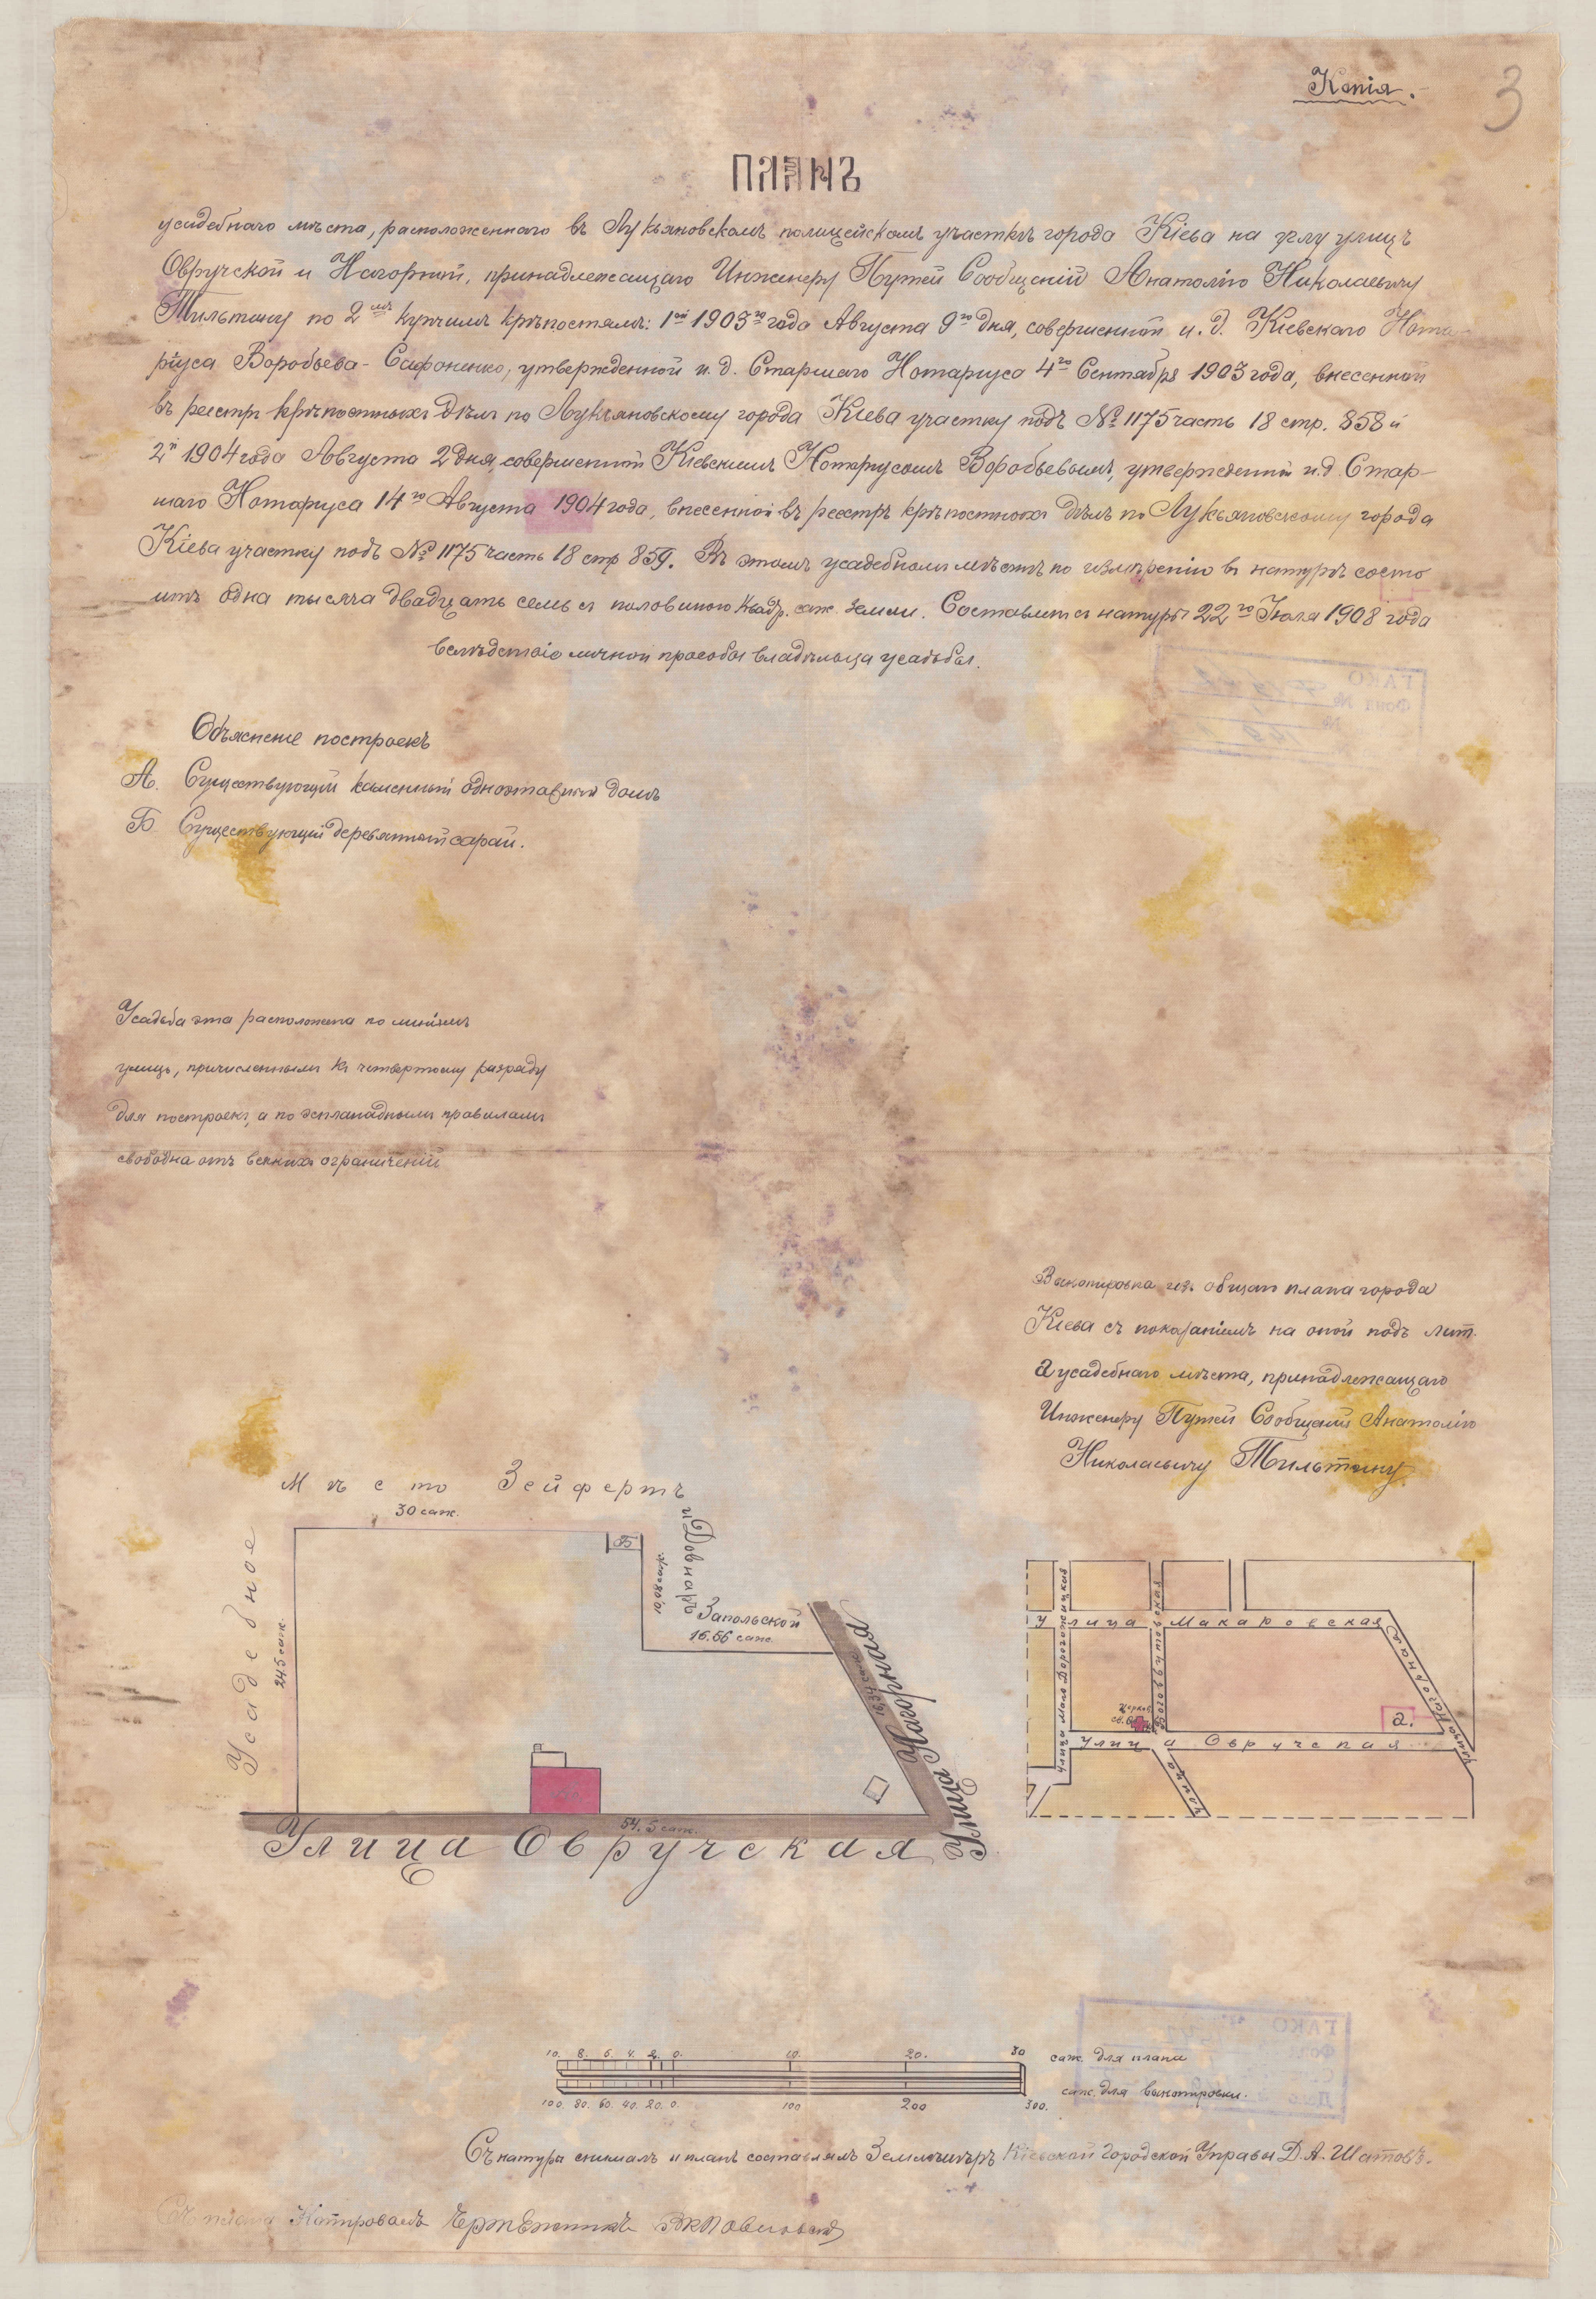 Копія.
3
ПЛАНЪ
усадебнаго мѣста, расположеннаго въ Лукьяновскомъ полицейскомъ участкѣ города Кіева на углу улицъ
Овручской и Нагорной, принадлежащаго Инженеру Путей Сообщеній Анатолію Николаевичу
Тильтину по 2мъ купчимъ крѣпостямъ: 1ой 1903го года Августа 9го дня, совершенной и. д. Кіевскаго Нота-
ріуса Воробьева-Сафоненко, утвержденной и. д. Старшаго Нотаріуса 4го Сентября 1903 года, внесенной
въ реестръ крѣпостныхъ дѣлъ по Лукьяновскому города Кіева участку подъ № 1175 часть 18 стр. 858 и
2й 1904 года Августа 2 дня, совершенной Кіевскимъ Нотаріусомъ Воробьевымъ, утвержденной и.д. Стар-
шаго Нотаріуса 14го Августа 1904 года, внесенной въ реестръ крѣпостныхъ дѣлъ по Лукьяновскому города
Кіева участку подъ № 1175 часть 18 стр 859. Въ этомъ усадебномъ мѣстѣ по измѣренію въ натурѣ состо
итъ одна тысяча двадцать семь съ половиною квадр. саж. земли. Составленъ съ натуры 22го Іюля 1908 года
вслѣдствіе личной просьбы владѣльца усадьбы.
ГАКО
Фонд №
№
Объясненіе построекъ
А. Существующій каменный одноэтажный домъ
Б. Существующій деревянный сарай.
Усадьба эта расположена по линіямъ
улицъ, причисленнымъ къ четвертому разряду
для построекъ, а по эспланаднымъ правиламъ
свободна отъ всякихъ ограниченій
Выкопировка изъ общаго плана города
Кіева съ показаніемъ на оной подъ лит.
а усадебнаго мѣста, принадлежащаго
Инженеру Путей Сообщеній Анатолію
Николаевичу Тильтину.
Усадебное
Мѣсто Зейфертъ
и Довнаръ
Запольской
30 саж.
24.5 саж.
Б
10,08 саж.
16.66 саж.
54.5 саж.
Улица Нагорная
Улица Овручская
Улица Макаровская
Улица Мало Дорогожицкая
Боговутовская
Улица Нагорная
Церковь
св.
а.
Улица Овручская
Улица
10. 8. 6. 4. 2. 0. 10. 20. 30 саж. для плана
100. 80. 60. 40. 20. 0. 100 200 300. саж. для выкопировки.
ГАКО
Съ натуры снималъ и планъ составлялъ Землемѣръ Кіевской Городской Управы Д. А. Шатовъ.
Съ плана Копировалъ Чертежникъ